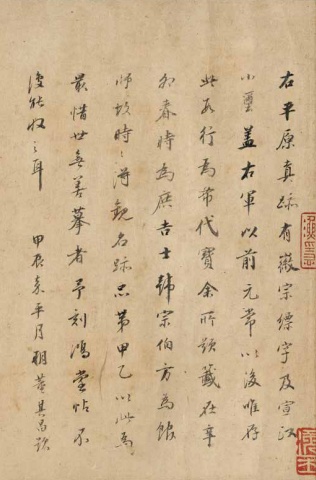 右平原真跡有徽宗縹字及宣和
小璽蓋右軍以前元常以後唯存
此數行為希代寶余所題籤在辛
卯春時為庶吉士韓宗伯方為館
師故時時得觀名跡品第甲乙以此為
最惜世無善摹者予刻鴻堂帖不
復能收之耳
甲辰嘉平月朔董其昌跋